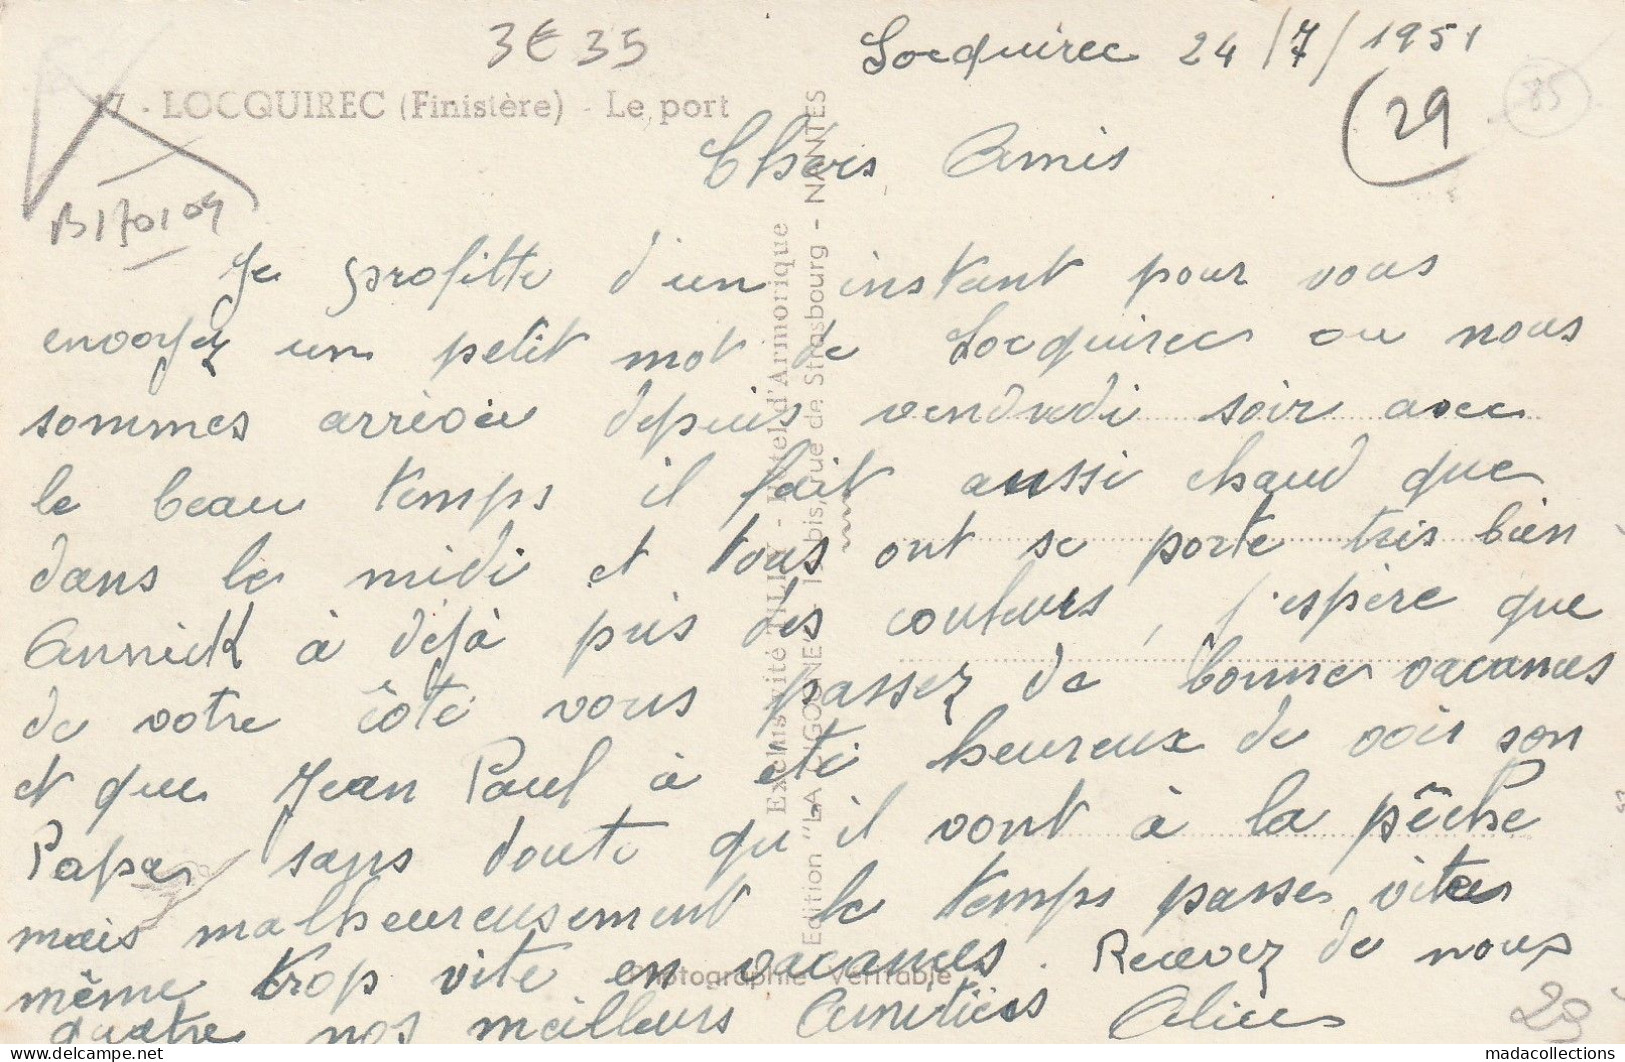 3€ 35
Locquirec 24/7/1951
17 - LOCQUIREC (Finistère) - Le port
(29
85
B170109
Chers Amis
Je profitte d'un instant pour vous
envoyez un petit mot de Locquirec ou nous
sommes arrivée depuis vendredi soir avec
le beau temps il fait aussi chaud que
dans le midi et tous ont se porte très bien
Annick à déjà pris des couleurs, j'espère que
de votre côté vous passez de bonne vacances
et que Jean Paul à été heureux de voir son
Papa sans doute qu'il vont à la pêche
mais malheureusement le temps passe vite
même trop vite en vacances. Recevez de nous
quatre nos meilleurs Amitiés Alice
Exclusivité TILLY - Hôtel d'Armorique
Edition "LA CIGOGNE" bis, rue de Strasbourg - NANTES
Photographie Véritable
29
madacollections